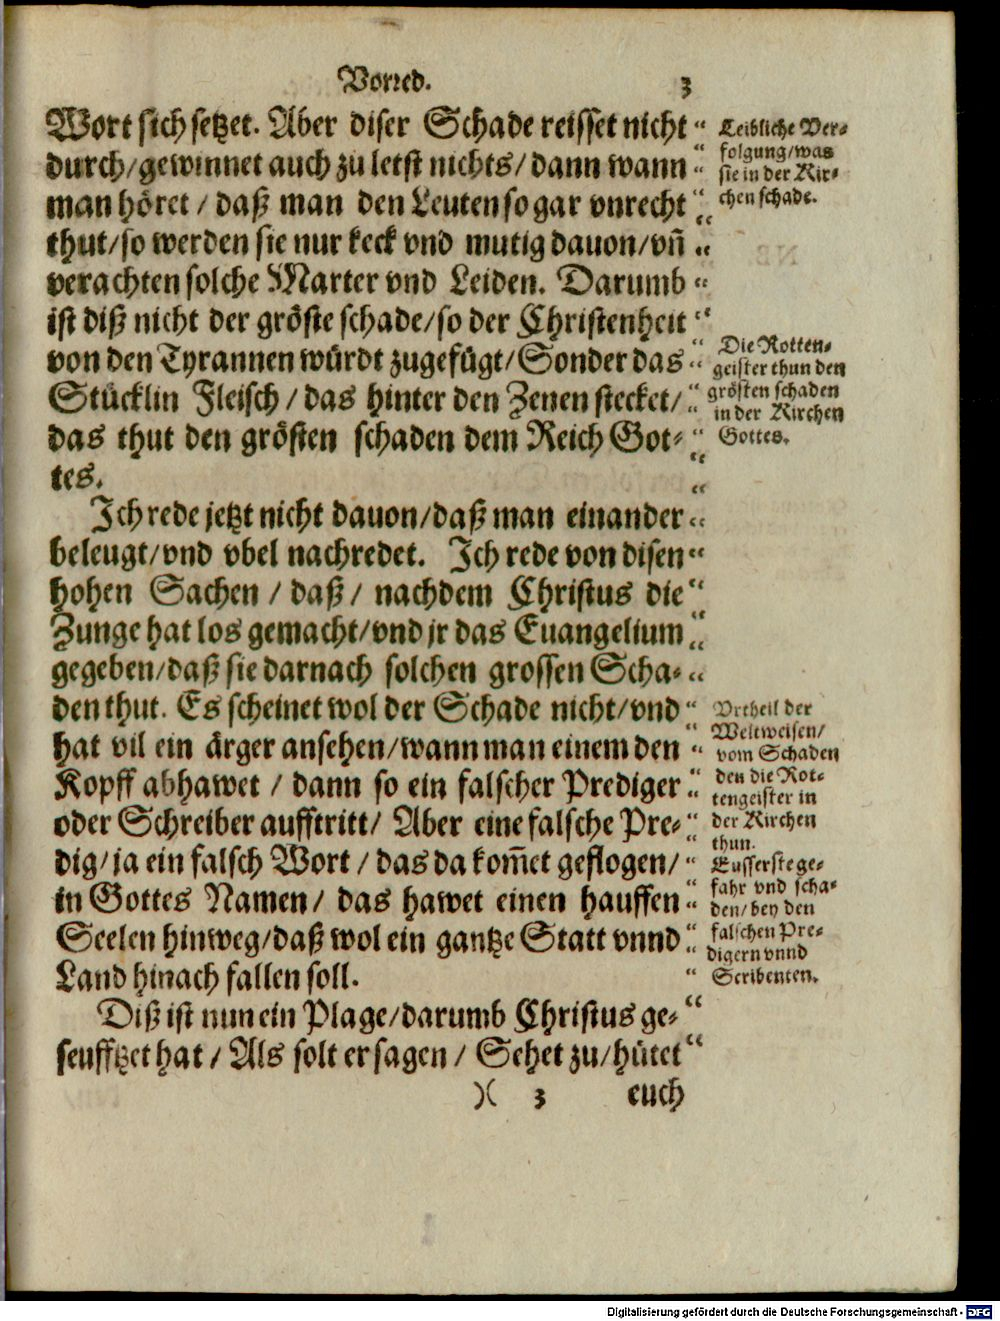 Vorred. 3
Wort sich setzet. Aber diser Schade reisset nicht “
durch/gewinnet auch zu letst nichts/dann wann “
man höret / daß man den Leuten so gar vnrecht “
thut/so werden sie nur keck vnd mutig dauon/vñ “
verachten solche Marter vnd Leiden. Darumb “
ist diß nicht der gröste schade/so der Christenheit “
von den Tyrannen würdt zugefügt/Sonder das “
Stücklin Fleisch / das hinter den Zenen stecket/ “
das thut den grösten schaden dem Reich Got- “
tes. “
Ich rede jetzt nicht dauon/daß man einander “
beleugt/vnd vbel nachredet. Ich rede von disen “
hohen Sachen / daß / nachdem Christus die “
Zunge hat los gemacht/vnd jr das Euangelium “
gegeben/daß sie darnach solchen grossen Scha- “
den thut. Es scheinet wol der Schade nicht/vnd “
hat vil ein ärger ansehen/wann man einem den “
Kopff abhawet / dann so ein falscher Prediger “
oder Schreiber aufftritt/ Aber eine falsche Pre- “
dig/ja ein falsch Wort / das da kom̃et geflogen/ “
in Gottes Namen / das hawet einen hauffen “
Seelen hinweg/daß wol ein gantze Statt vnnd “
Land hinach fallen soll. “
Diß ist nun ein Plage/darumb Christus ge- “
seufftzet hat / Als solt er sagen / Sehet zu/hütet “
)( 3 euch
Leibliche Ver-
folgung/was
sie in der Kir-
chen schade.
Die Rotten-
geister thun den
grösten schaden
in der Kirchen
Gottes.
Vrtheil der
Weltweisen/
vom Schaden
den die Rot-
tengeister in
der Kirchen
thun.
Eusserste ge-
fahr vnd scha-
den/bey den
falschen Pre-
digern vnnd
Scribenten.
Digitalisierung gefördert durch die Deutsche Forschungsgemeinschaft - DFG